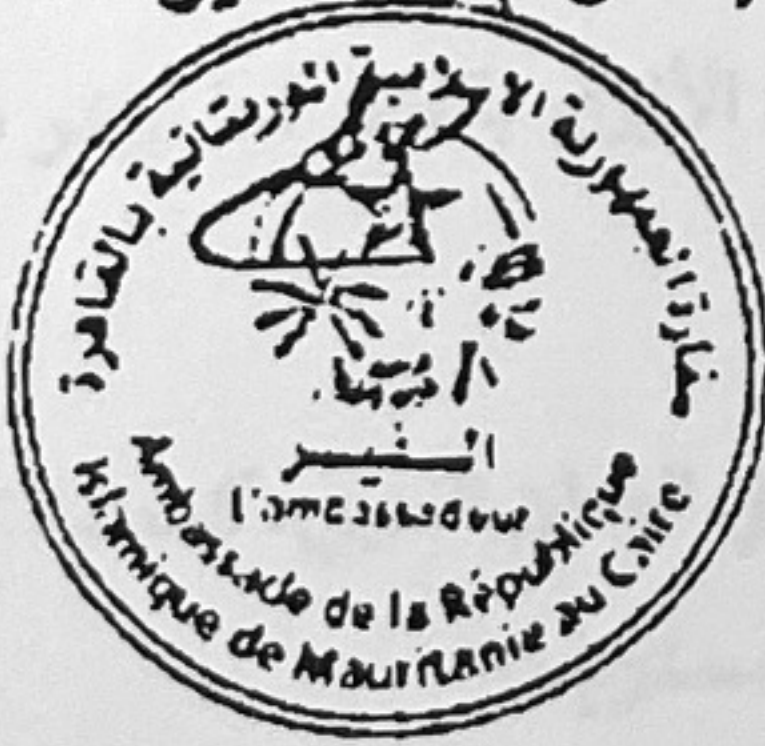 سفارة الجمهورية الإسلامية الموريتانية بالقاهرة
السفير
l'ambassadeur
Ambassade de la République
Islamique de Mauritanie au Caire